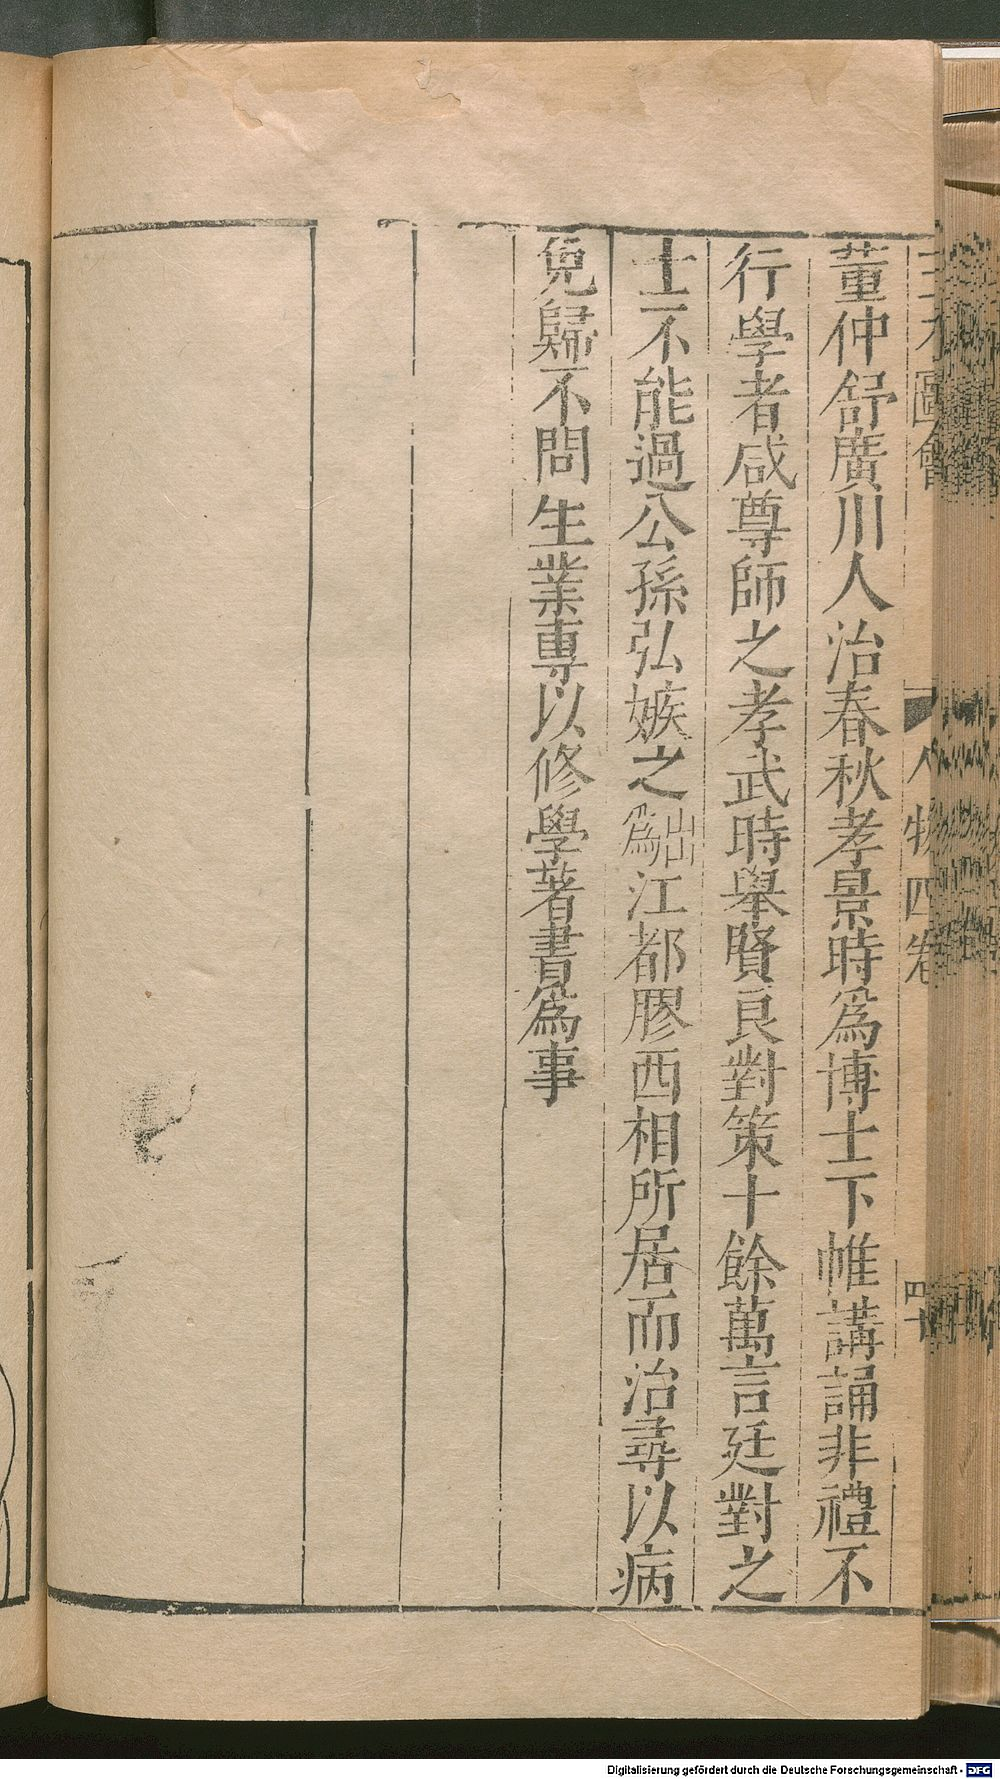 三才圖會
人物四卷
四十
董仲舒廣川人治春秋孝景時爲博士下帷講誦非禮不
行學者咸尊師之孝武時舉賢良對策十餘萬言廷對之
士不能過公孫弘嫉之出爲江都膠西相所居而治尋以病
免歸不問生業專以修學著書爲事
Digitalisierung gefördert durch die Deutsche Forschungsgemeinschaft - DFG